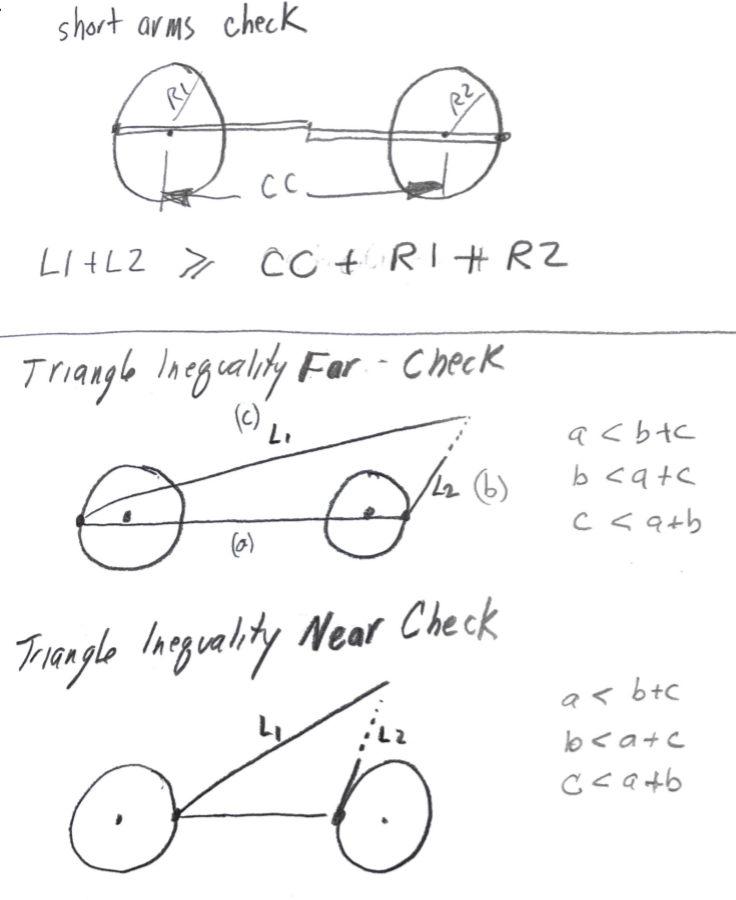 short arms check
R1
R2
CC
L1+L2 ≥ CC + R1 + R2
Triangle Inequality Far - Check
(c)
L1
a < b+c
L2 (b)
b < a+c
(a)
c < a+b
Triangle Inequality Near Check
L1
L2
a < b+c
b < a+c
c < a+b